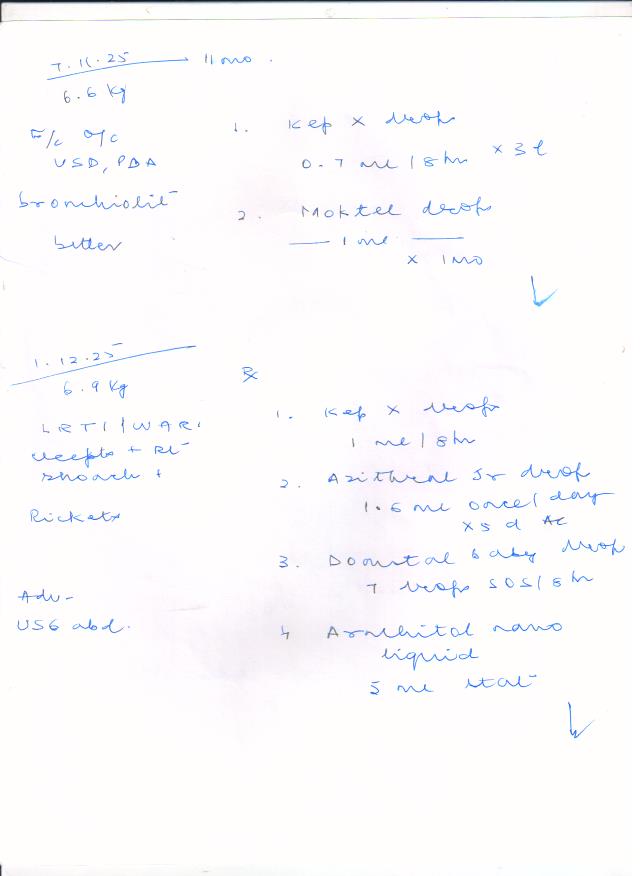 7.11.25 11 mo.
6.6 kg
F/c o/c
VSD, PDA
bronchiolit
better
1. Kep X drops
0.7 ml / 8 hr x 3 d
2. drops
1 ml
x 1 mo
1.12.25
6.9 kg
LRTI / WARI
+
+
Rickets
Adv -
USG abd.
Rx
1. Kep X drops
1 ml / 8 hr
2. Azithral Jr drop
1.6 ml once / day
x 5 d AC
3. baby drop
7 drops SOS / 8 hr
4 Arachitol nano
liquid
5 ml stat